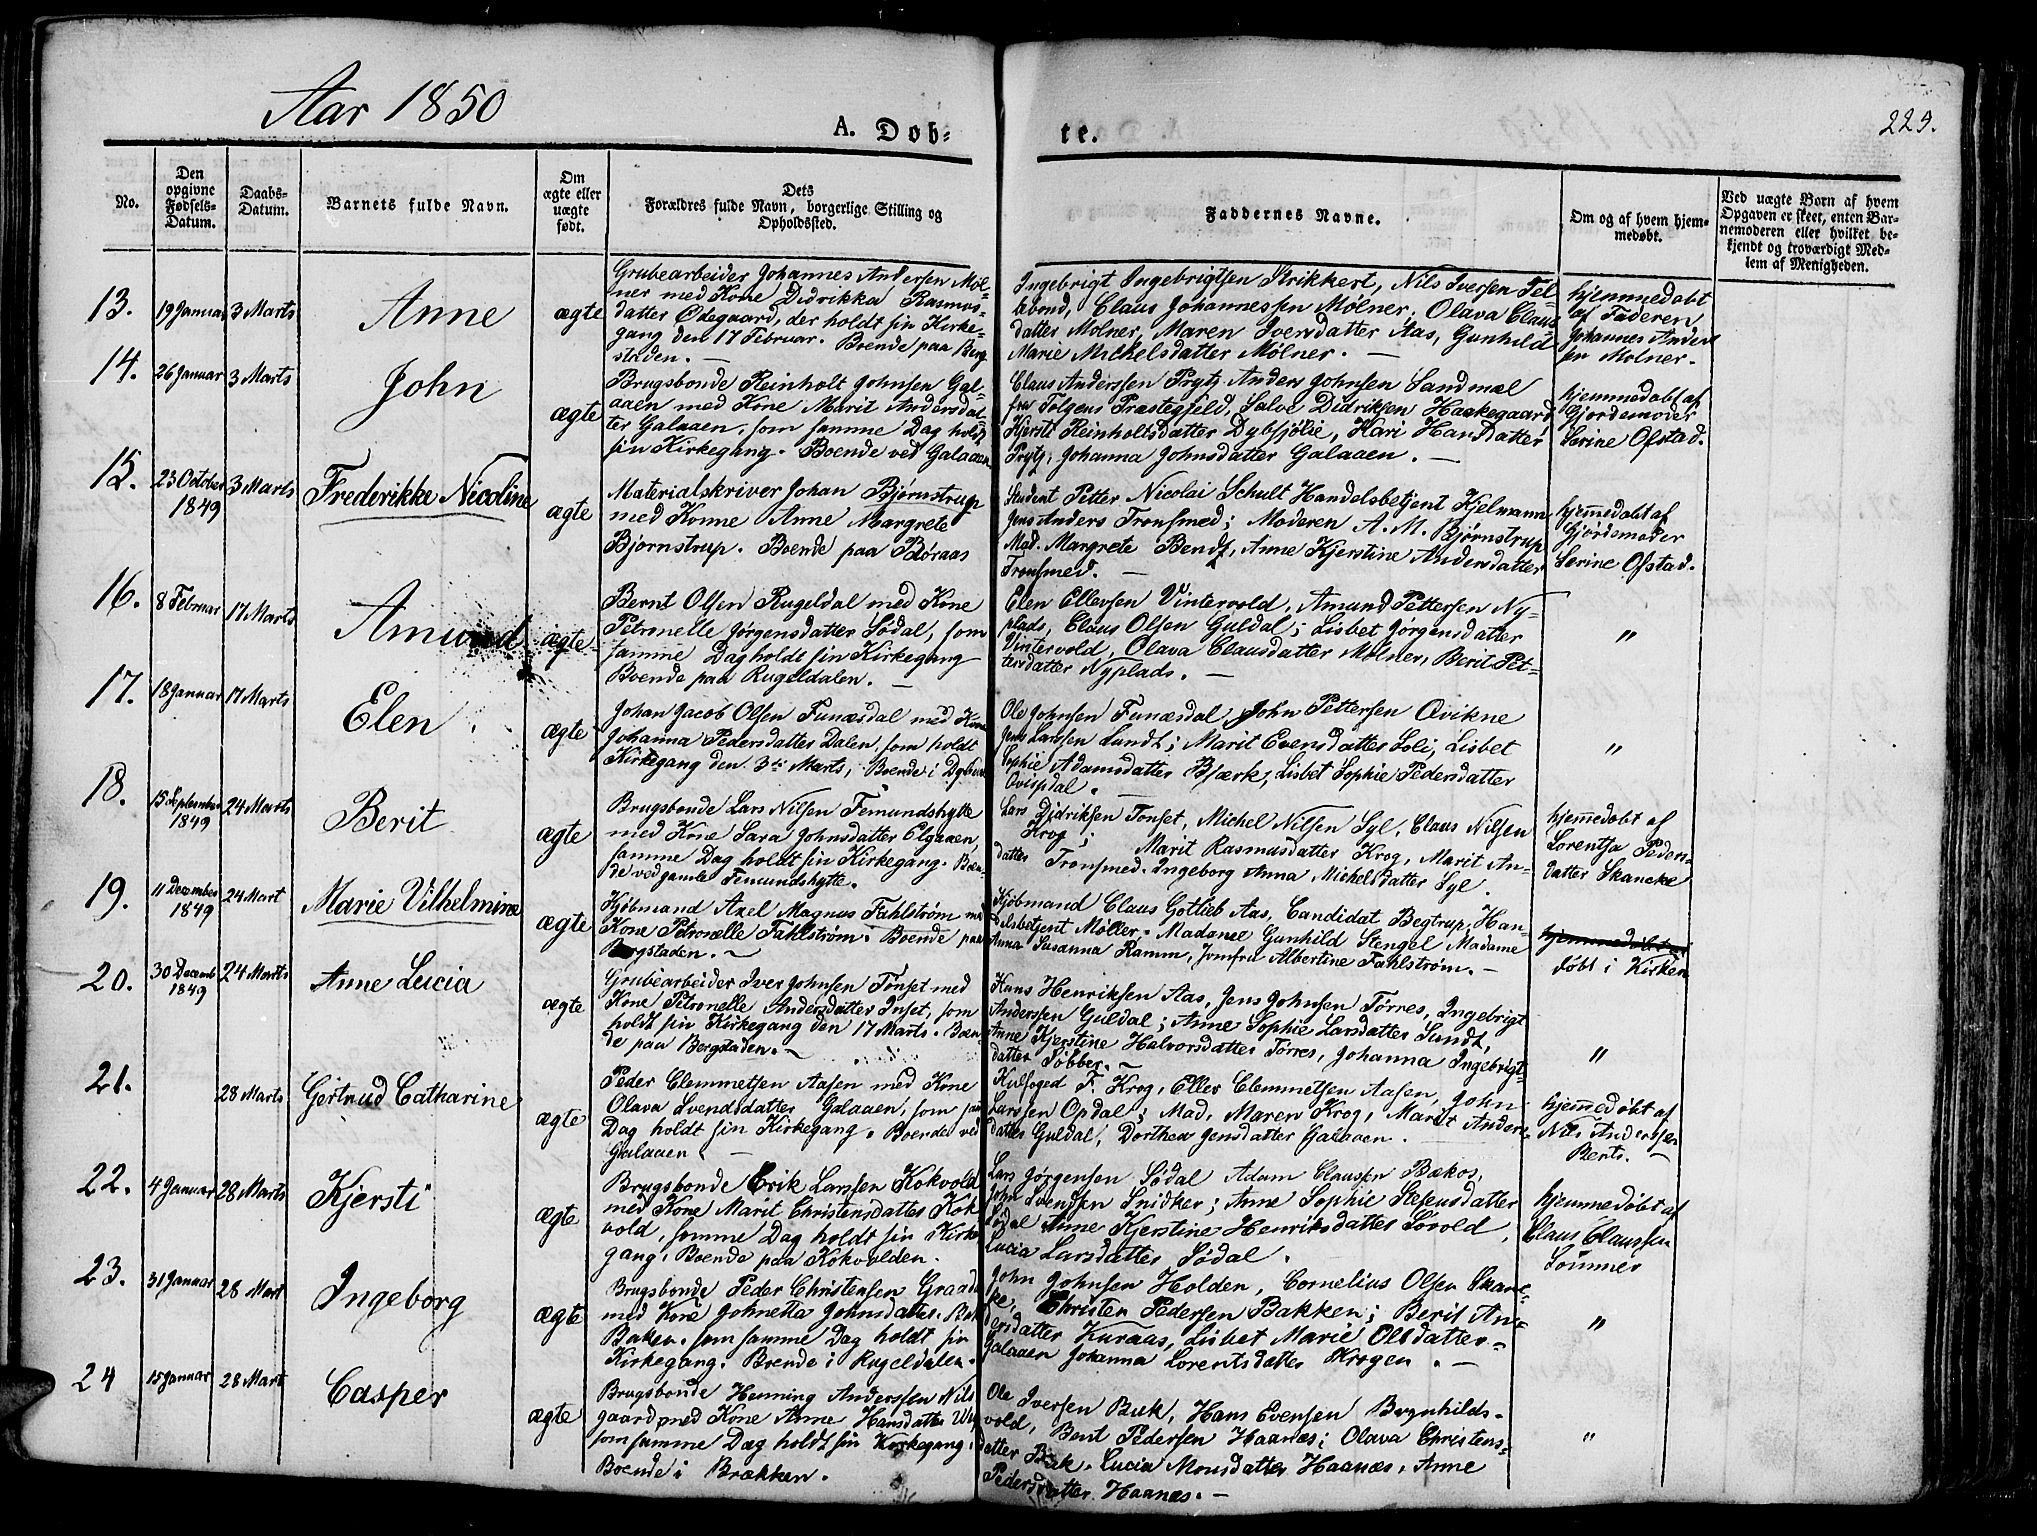 Aar 1850
A. Døb-
te.
229.
No.
Den opgivne Fødsels-Datum.
Daabs-Datum.
Barnets fulde Navn.
Om ægte eller uægte født.
Dets Forældres fulde Navn, borgerlige Stilling og Opholdssted.
Faddernes Navne.
Om og af hvem hjem-medøbt.
Ved uægte Børn af hvem Opgaven er skeet, enten Bar-nemoderen eller hvilket be-kjendt og troværdigt Med-lem af Menigheden.
13. 19 Januar 3 Marts Anne ægte
Grubearbeider Johannes Andersen Møl-
ner med Kone Didrikka Rasmus-
datter Ødegaard, der holdt sin Kirke-
gang den 17 Februar. Boende paa Berg
staden. —
Ingebrigt Ingebrigtsen Strikkert, Nils Iversen Fel-
Claus Johannessen Mølner, Olava Claus
datter Mølner, Maren Iversdatter Aas, Gunhild
Marie Michelsdatter Mølner. —
hjemmedøbt
af Faderen
Johannes Anders
sen Mølner.
14. 26 Januar 3 Marts John ægte
Brugsbonde Reinholt Johnsen Gal-
aaen med Kone Marit Andersdat-
ter Galaaen, som samme Dag holdt
sin Kirkegang. Boende ved Galaaen
Claus Anderssen Prytz, Anders Johnsen Sandmæl
fra Tolgens Præstegjeld, Salve Didriksen Haakegaard,
Kjersti Reinholtsdatter Dybsjølie, Kari Hansdatter
Prytz, Johanna Johnsdatter Galaaen. —
hjemmedøbt af
Gjordemoder
Serine Ofstad.
15. 23 October 1849 3 Marts Frederikke Nicoline ægte
Materialskriver Johan Bjørnstrup
med Konne Anne Margrete
Bjørnstrup. Boende paa Røraas
Student Petter Nicolai Schult Handelsbetjent Kjelmann
Jens Anders Tronsmed; Moderen A. M. Bjørnstrup
Mad. Margrete Bendz, Anne Kjerstine Andersdatter
Tronsmed. —
hjemmedøbt af
Gjordemoder
Serine Ofstad.
16. 8 Februar 17 Marts Amund ægte
Bernt Olsen Rugeldal med Kone
Petronelle Jørgensdatter Sødal, som
samme Dag holdt sin Kirkegang
Boende paa Rugeldalen. —
Elen Ellevsen Vintervold, Amund Pettersen Ny-
plads, Claus Olsen Guldal; Lisbet Jørgensdatter
Vintervold, Olava Clausdatter Mølner, Berit Pet-
tersdatter Nyplads. —
"
17. 18 Januar 17 Marts Elen ægte
Johan Jacob Olsen Funæsdal med Kone
Johanna Pedersdatter Dalen, som holdt
Kirkegang den 3de Marts, Boende i
Ole Johnsen Funæsdal, John Pettersen Qvikne
Jens Larssen Sundt; Marit Evensdatter Soli, Lisbet
Sophie Adamsdatter Bjærk, Lisbet Sophie Pedersdatter
"
18. 15 September 1849 24 Marts Berit ægte
Brugsbonde Lars Nilsen Femundshytte
med Kone Sara Johnsdatter Elgaaen,
samme Dag holdt sin Kirkegang. Boen-
de ved gamle Femundshytte.
Lars Didriksen Tonset, Michel Nilsen Syl, Claus Nilsen
Krog; Marit Rasmusdatter Krog, Marit An-
datter Tronsmed. Ingeborg Anna Michelsdatter Syl.
hjemmedøbt af
Lorentsa Peders-
datter Skancke
19. 11 December 1849 24 Mart Marie Vilhelmine ægte
Kjøbmand Axel Magnus Fahlstrøm med
Kone Petronelle Fahlstrøm. Boende paa
Bergstaden. ~
Kjøbmand Claus Gotlieb Aas, Candidat Begtrup, Han-
delsbetjent Møller. Madame Gunhild Stengel Madame
Anna Susanna Ramm, Jomfru Albertine Fahlstrøm. —
hjemmedøbt af
døbt i Kirken
20. 30 Decemb 1849 24 Marts Anne Lucia ægte
Grubearbeider Iver Johnsen Tønset med
Kone Petronelle Andersdatter Inset, som
holdt sin Kirkegang den 17 Marts. Boen-
de paa Bergstaden. ~
Hans Henriksen Aas, Jens Johnsen Tørres, Ingebrigt
Anderssen Guldal; Anne Sophie Larsdatter Sundt,
Anne Kjerstine Halvorsdatter Tørres, Johanna Ingebrigt-
datter Tøbber. ~
"
21. 28 Marts Gertrud Catharine ægte
Peder Clemmetsen Aasen med Kone
Olava Svendsdatter Galaaen, som
Dag holdt sin Kirkegang. Boende ved
Galaaen —
Kulfoged F. Krog, Eller Clemmetsen Aasen, John
Larssen Opdal; Mad. Maren Krog, Marit Anders
datter Guldal, Dorthea Jensdatter Galaaen. —
hjemmedøbt af
Nils Anderssen
Bents. —
22. 4 Januar 28 Marts Kjersti ægte
Brugsbonde Erik Larssen Kokvold
med Kone Marit Christensdatter Kok
vold, samme Dag holdt sin Kirke
gang, Boende paa Kokvolden.
Lars Jørgensen Sødal Adam Claussen Bækos,
John Svendsen Snidker; Anne Sophie Stefensdatter
Sødal Anne Kjerstine Henriksdatter Søvold,
Lucia Larsdatter Sødal.
hjemmedøbt af
Claus Claussen
Sømmer
23. 31 Januar 28 Mart Ingeborg ægte
Brugsbonde Peder Christensen Graad
med Kone Johnetta Johnsdatter
Baken, som samme Dag holdt sin
Kirkegang. Boende i Rugeldalen.
John Johnsen Holden, Cornelius Olsen Skanc-
ke, Christen Pedersen Bakken; Berit An-
dersdatter Kuraas, Lisbet Marie Olsdatter-
Galaaen Johanna Lorentsdatter Krogen. —
"
24 15 Januar 28 Mart Casper ægte
Brugsbonde Henning Anderssen Nils
gaard med Kone Anne Hansdatter
som samme Dag holdt sin Kirkegang,
Boende i Brækken.
Ole Iversen Bæk, Hans Evensen Brynhilds-
vold, Bent Pedersen Haanæs; Olava Christens-
datter Bæk, Lucia Monsdatter Haanæs, Anne
Pedersdatter Haanæs. —
"